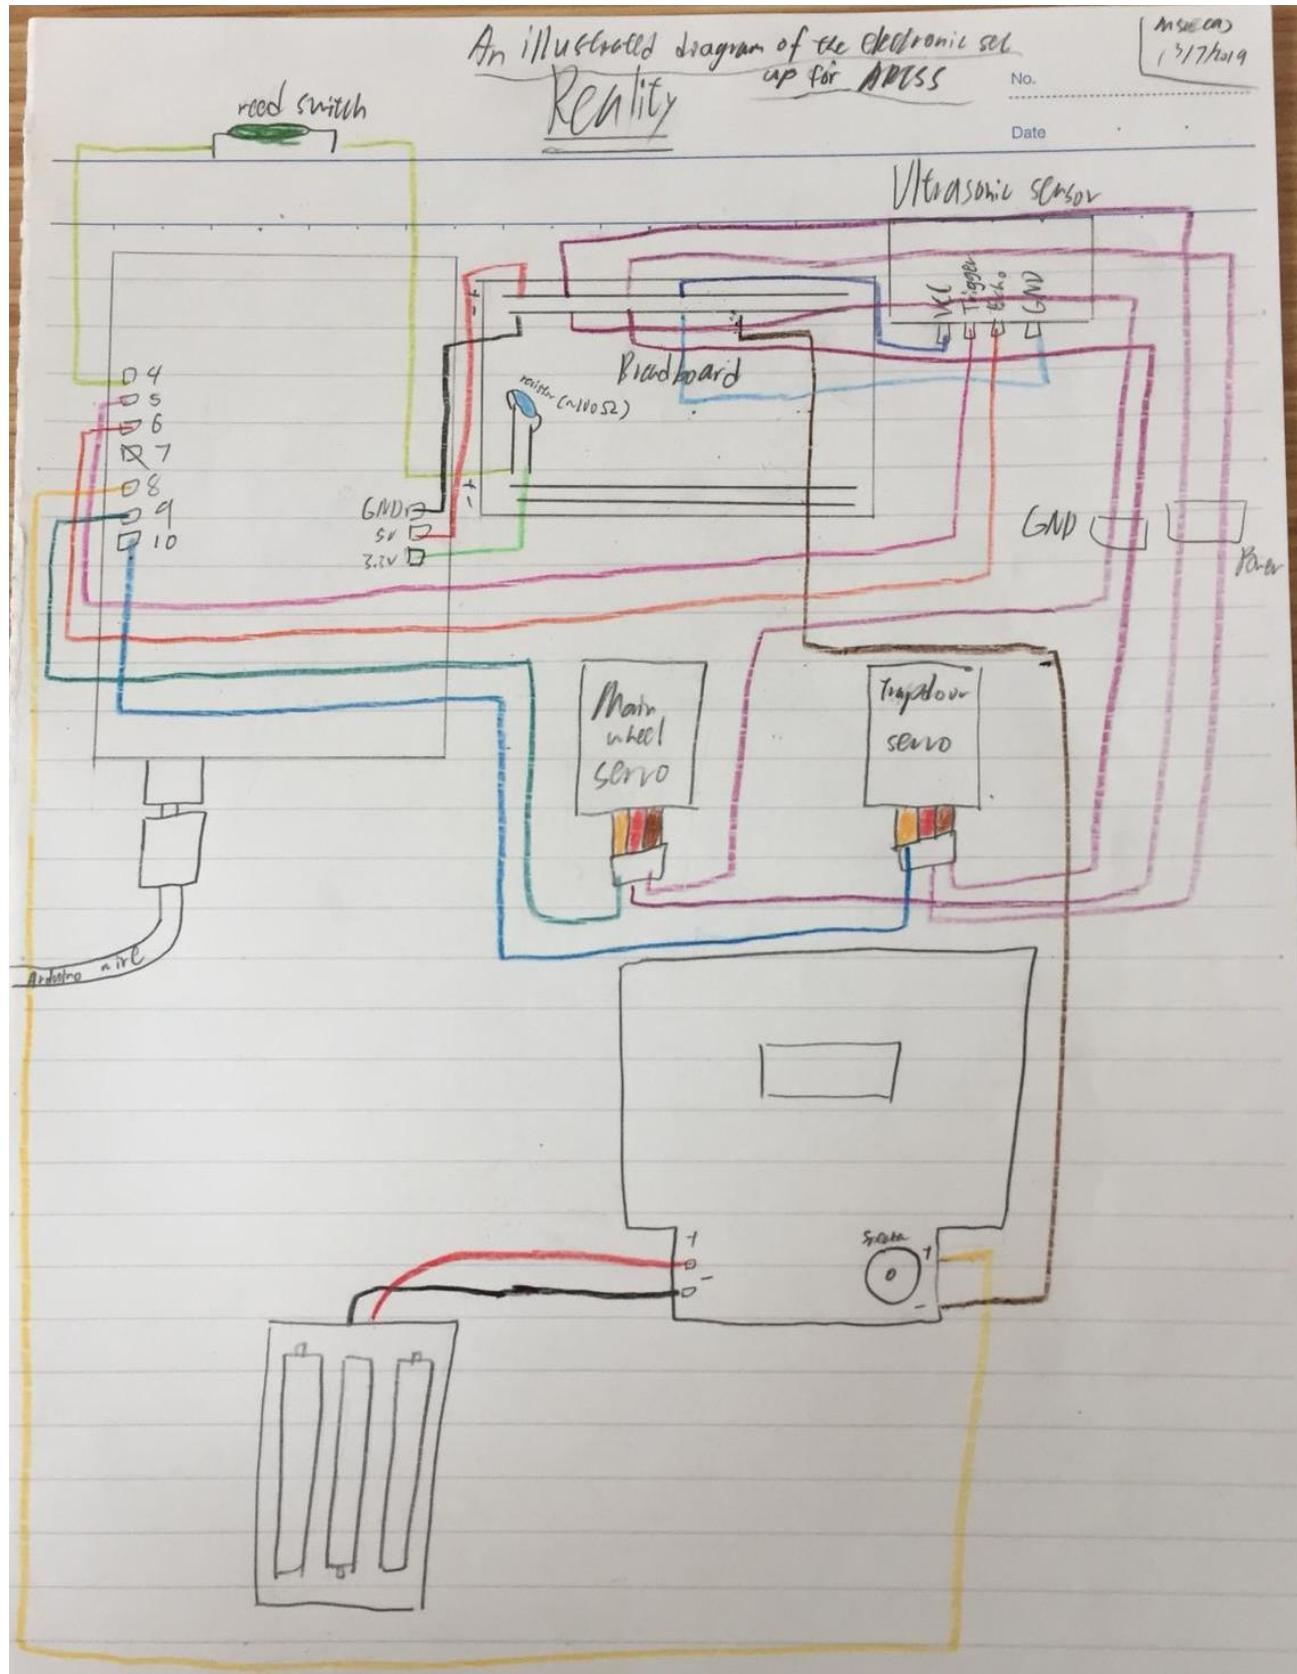 An illustrated diagram of the electronic set
up for APCSS
Reality
13/7/2019
No.
Date
reed switch
Ultrasonic sensor
VCC
Trigger
Echo
GND
+
-
Breadboard
resistor (~100Ω)
+
-
4
5
6
7
8
9
10
GND
5V
3.3V
GND
Power
Main
wheel
servo
Trapdoor
servo
Arduino wire
+
-
Speaker
+
-